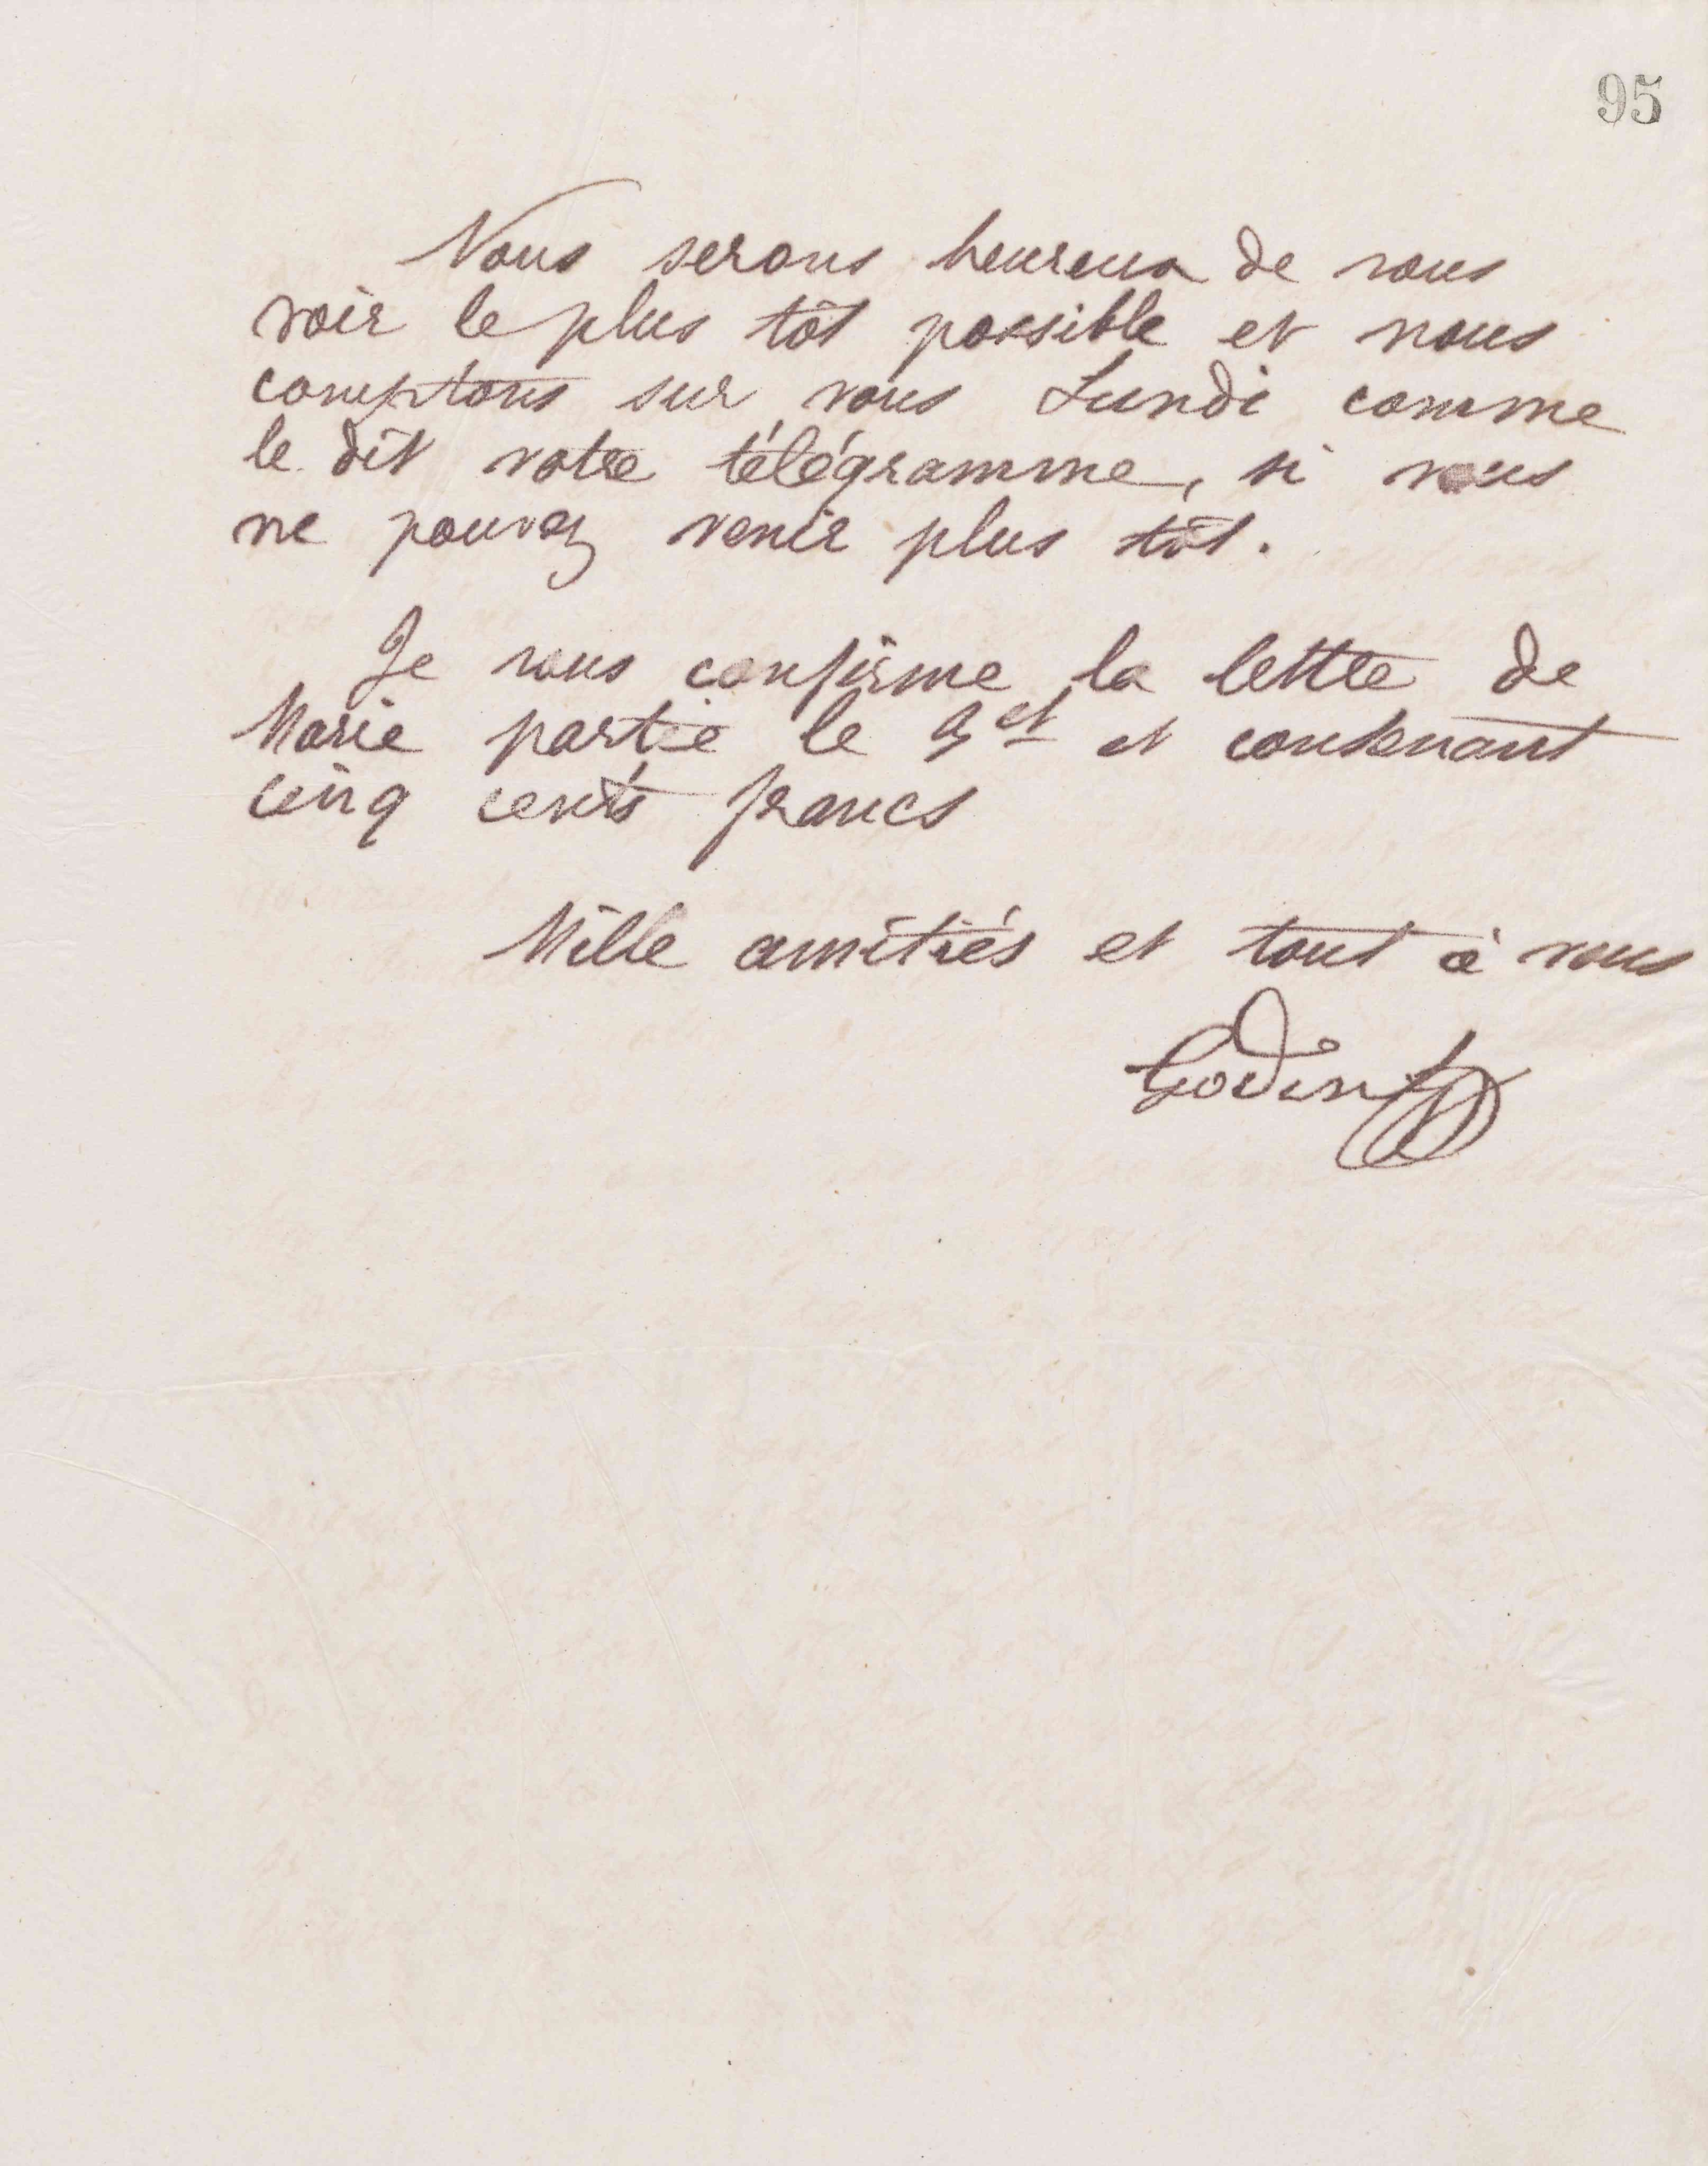 95
Nous serons heureux de vous
voir le plus tôt possible et nous
comptons sur vous Lundi comme
le dit votre télégramme, si vous
ne pouvez venir plus tôt.
Je vous confirme la lettre de
Marie partie le et contenant
cinq cents francs
Mille amitiés et tout à vous
Godin